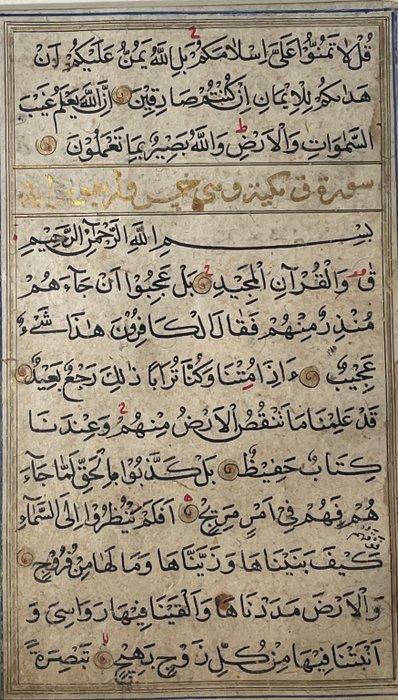 قُلْ لَا تَمُنُّوا عَلَيَّ اِسْلَامَكُمْ بَلِ اللّٰهُ يَمُنُّ عَلَيْكُمْ اَنْ
هَدٰىكُمْ لِلْاِيمَانِ اِنْ كُنْتُمْ صَادِقِينَ اِنَّ اللّٰهَ يَعْلَمُ غَيْبَ
السَّمٰوَاتِ وَالْاَرْضِ وَاللّٰهُ بَصِيرٌ بِمَا تَعْمَلُونَ
سورة ق مكية وهي خمس وأربعون اية
بِسْمِ اللّٰهِ الرَّحْمٰنِ الرَّحِيمِ
قٓ وَالْقُرْآنِ الْمَجِيدِ بَلْ عَجِبُوا اَنْ جَآءَهُمْ
مُنْذِرٌ مِنْهُمْ فَقَالَ الْكَافِرُونَ هٰذَا شَيْءٌ
عَجِيبٌ ءَاِذَا مِتْنَا وَكُنَّا تُرَابًا ذٰلِكَ رَجْعٌ بَعِيدٌ
قَدْ عَلِمْنَا مَا تَنْقُصُ الْاَرْضُ مِنْهُمْ وَعِنْدَنَا
كِتَابٌ حَفِيظٌ بَلْ كَذَّبُوا بِالْحَقِّ لَمَّا جَآءَ
هُمْ فَهُمْ فِي اَمْرٍ مَرِيجٍ اَفَلَمْ يَنْظُرُوا اِلَى السَّمَآءِ
كَيْفَ بَنَيْنَاهَا وَزَيَّنَّاهَا وَمَا لَهَا مِنْ فُرُوجٍ
وَالْاَرْضَ مَدَدْنَاهَا وَاَلْقَيْنَا فِيهَا رَوَاسِيَ وَ
اَنْبَتْنَا فِيهَا مِنْ كُلِّ زَوْجٍ بَهِيجٍ تَبْصِرَةً